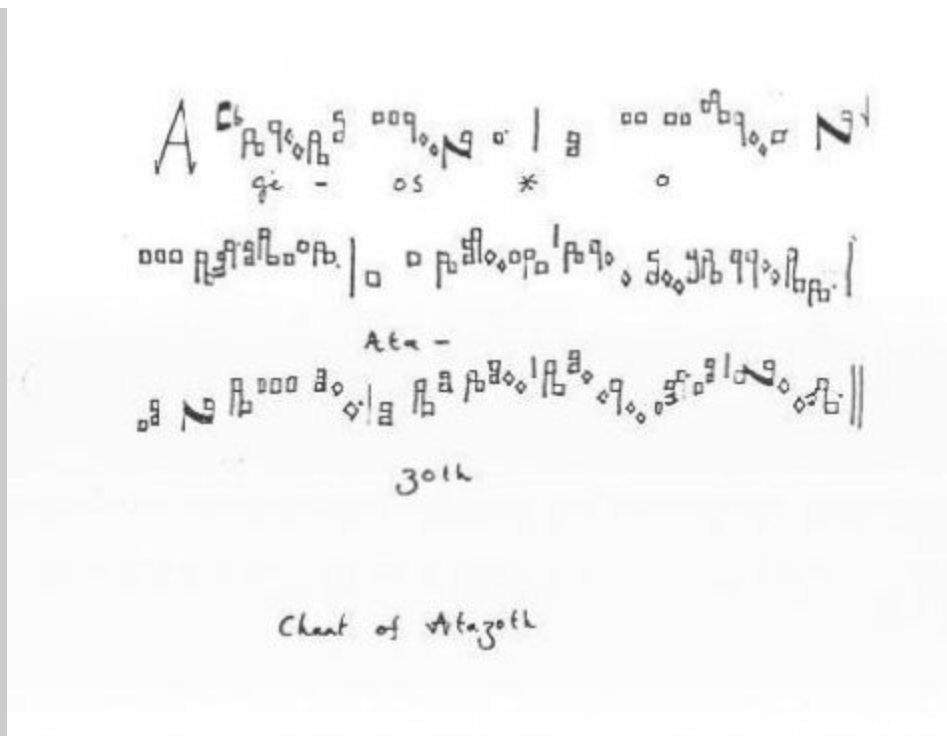 A
gi - os * o
Ata -
zoth
Chant of Atazoth